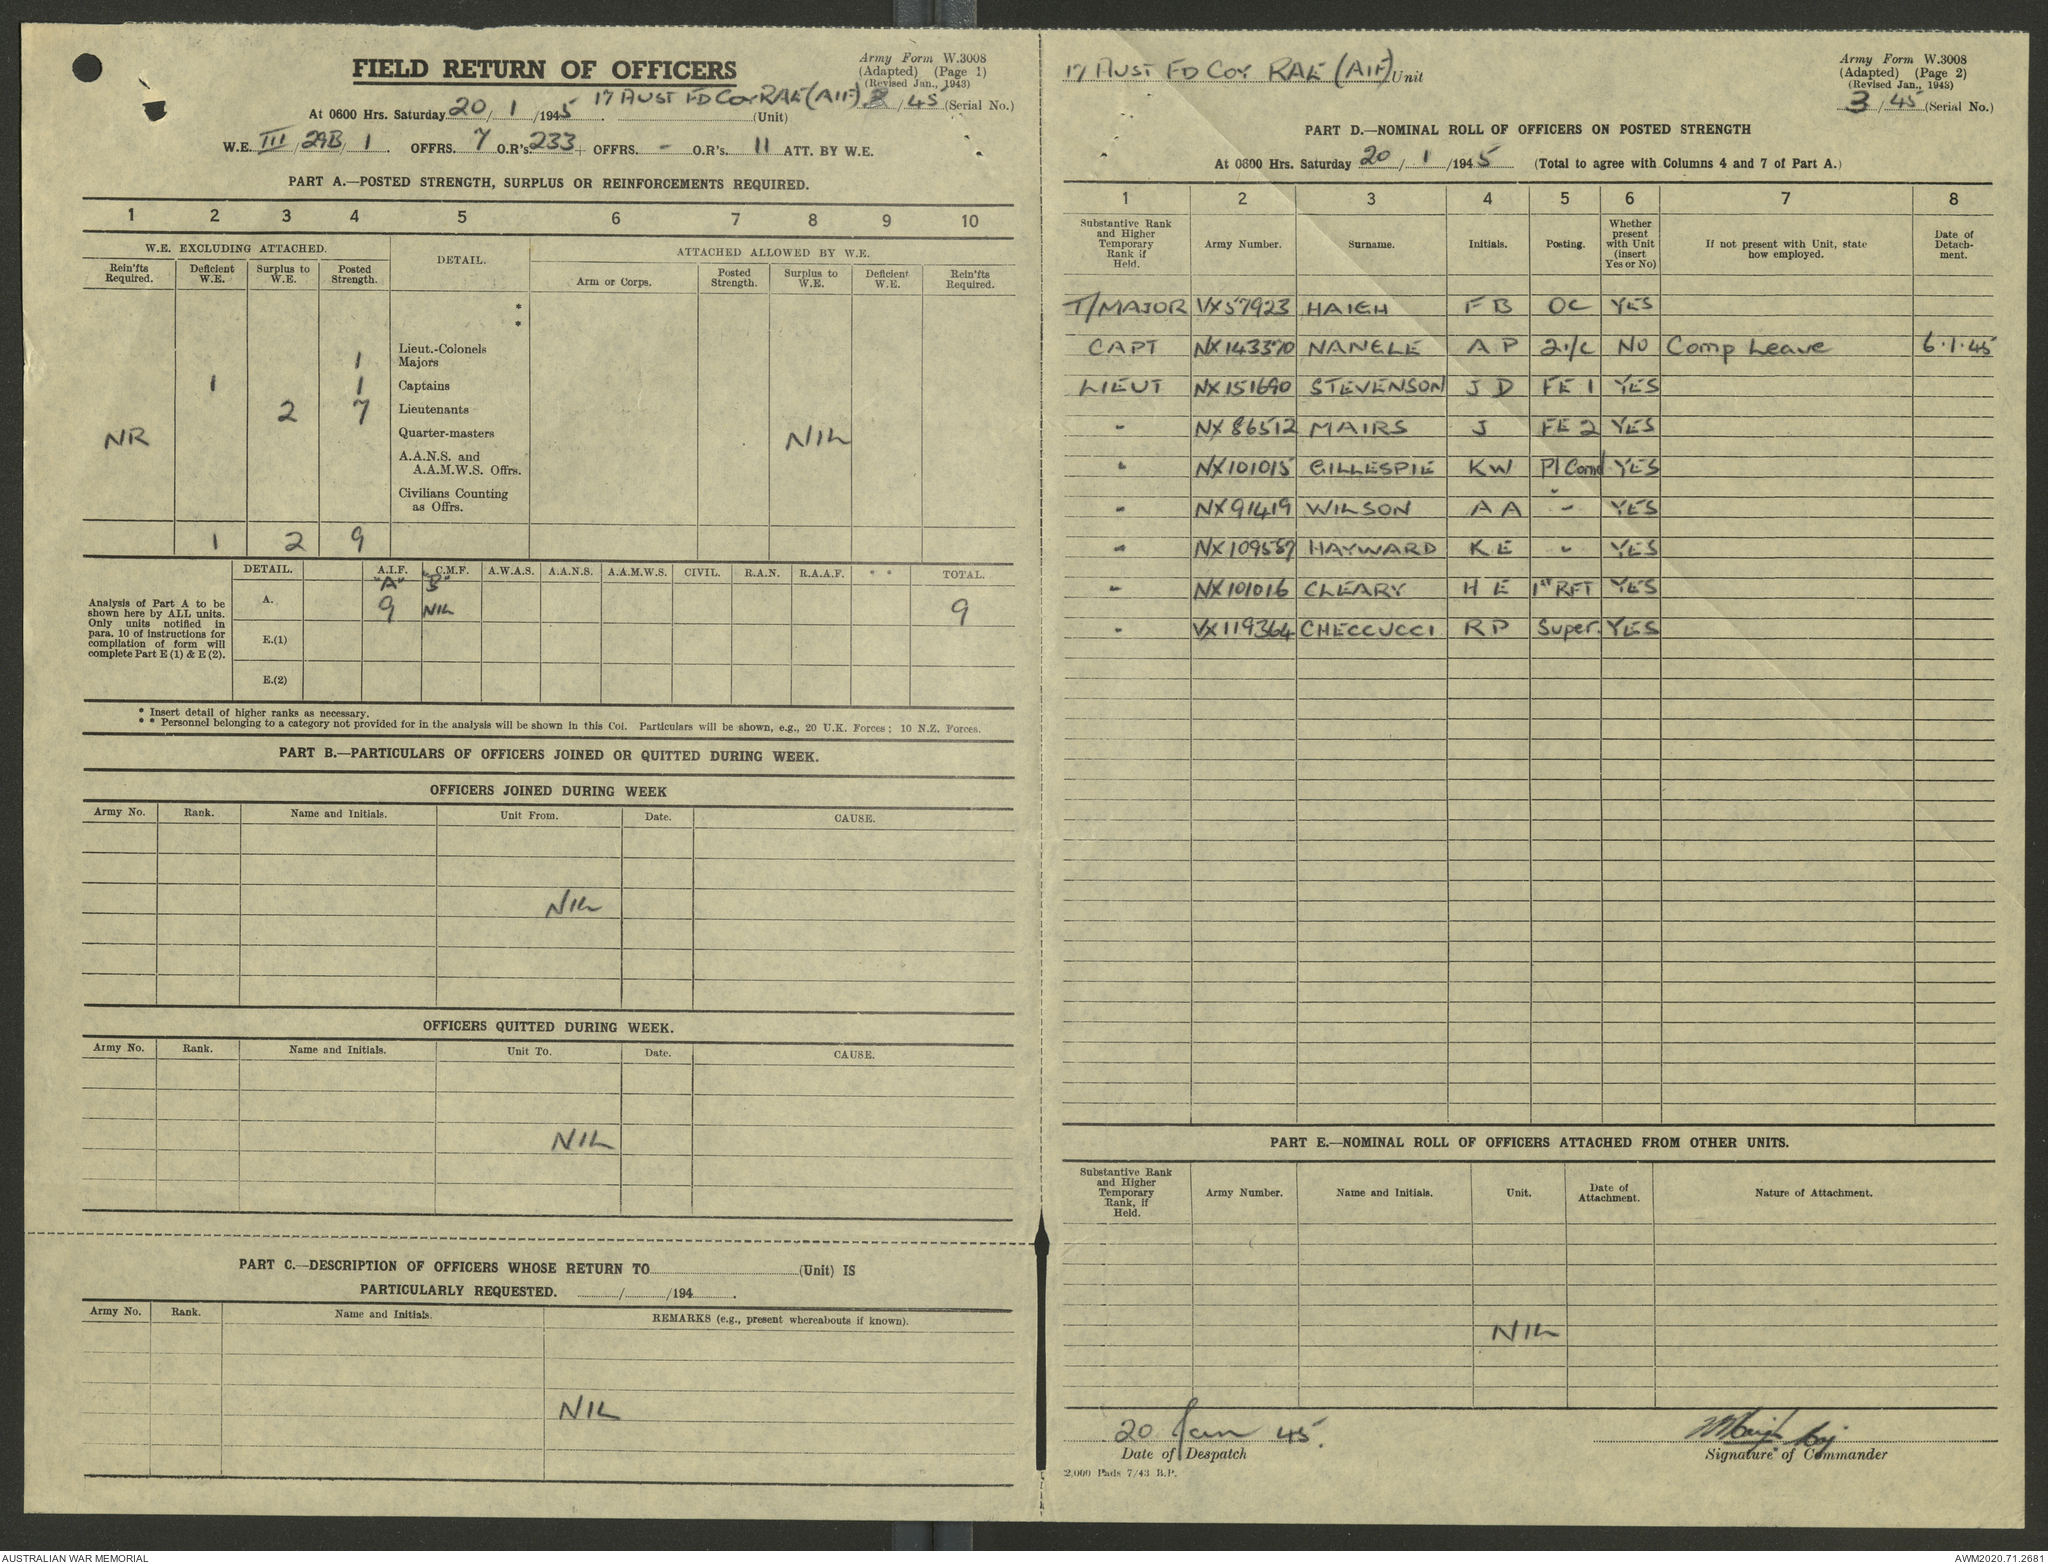 FIELD RETURN OF OFFICERS
Army Form W.3008
(Adapted) (Page 1)
(Revised Jan., 1943)
At 0600 Hrs. Saturday 20 / 1 /1945. 17 AUST FD COY RAE (AIF) (Unit) 3 / 45 (Serial No.)
W.E. III / 29B / 1 . OFFRS. 7 O.R's. 233 + OFFRS. - O.R's. 11 ATT. BY W.E.
PART A.—POSTED STRENGTH, SURPLUS OR REINFORCEMENTS REQUIRED.
1 2 3 4 5 6 7 8 9 10
W.E. EXCLUDING ATTACHED. DETAIL. ATTACHED ALLOWED BY W.E.
Rein'fts Required. Deficient W.E. Surplus to W.E. Posted Strength. Arm or Corps. Posted Strength. Surplus to W.E. Deficient W.E. Rein'fts Required.
*
*
Lieut.-Colonels
1 Majors
1 1 Captains
2 7 Lieutenants
NR Quarter-masters NIL
A.A.N.S. and
A.A.M.W.S. Offrs.
Civilians Counting
as Offrs.
1 2 9
DETAIL. A.I.F. C.M.F. A.W.A.S. A.A.N.S. A.A.M.W.S. CIVIL. R.A.N. R.A.A.F. * * TOTAL.
"A" "B"
A. 9 NIL 9
E.(1)
E.(2)
Analysis of Part A to be
shown here by ALL units.
Only units notified in
para. 10 of instructions for
compilation of form will
complete Part E (1) & E (2).
* Insert detail of higher ranks as necessary.
* * Personnel belonging to a category not provided for in the analysis will be shown in this Col. Particulars will be shown, e.g., 20 U.K. Forces; 10 N.Z. Forces.
PART B.—PARTICULARS OF OFFICERS JOINED OR QUITTED DURING WEEK.
OFFICERS JOINED DURING WEEK
Army No. Rank. Name and Initials. Unit From. Date. CAUSE.
NIL
OFFICERS QUITTED DURING WEEK.
Army No. Rank. Name and Initials. Unit To. Date. CAUSE.
NIL
PART C.—DESCRIPTION OF OFFICERS WHOSE RETURN TO (Unit) IS
PARTICULARLY REQUESTED. / /194 .
Army No. Rank. Name and Initials. REMARKS (e.g., present whereabouts if known).
NIL
17 AUST FD COY RAE (AIF) Unit
Army Form W.3008
(Adapted) (Page 2)
(Revised Jan., 1943)
3 / 45 (Serial No.)
PART D.—NOMINAL ROLL OF OFFICERS ON POSTED STRENGTH
At 0600 Hrs. Saturday 20 / 1 /1945 (Total to agree with Columns 4 and 7 of Part A.)
1 2 3 4 5 6 7 8
Substantive Rank and Higher Temporary Rank if Held. Army Number. Surname. Initials. Posting. Whether present with Unit (insert Yes or No) If not present with Unit, state how employed. Date of Detach-ment.
T/MAJOR VX57923 HAIGH F B OC YES
CAPT NX143370 NANGLE A P 2i/c NO Comp Leave 6.1.45
LIEUT NX151690 STEVENSON J D FE 1 YES
- NX86512 MAIRS J FE 2 YES
- NX101015 GILLESPIE K W Pl Comd YES
- NX91419 WILSON A A - YES
- NX109587 HAYWARD K E - YES
- NX101016 CLEARY H E 1st RFT YES
- VX119364 CHECCUCCI R P Super. YES
PART E.—NOMINAL ROLL OF OFFICERS ATTACHED FROM OTHER UNITS.
Substantive Rank and Higher Temporary Rank, if Held. Army Number. Name and Initials. Unit. Date of Attachment. Nature of Attachment.
NIL
20 Jan 45.
Date of Despatch
Haigh Maj
Signature of Commander
2,000 Pads 7/43 B.P.
AUSTRALIAN WAR MEMORIAL
AWM2020.71.2681